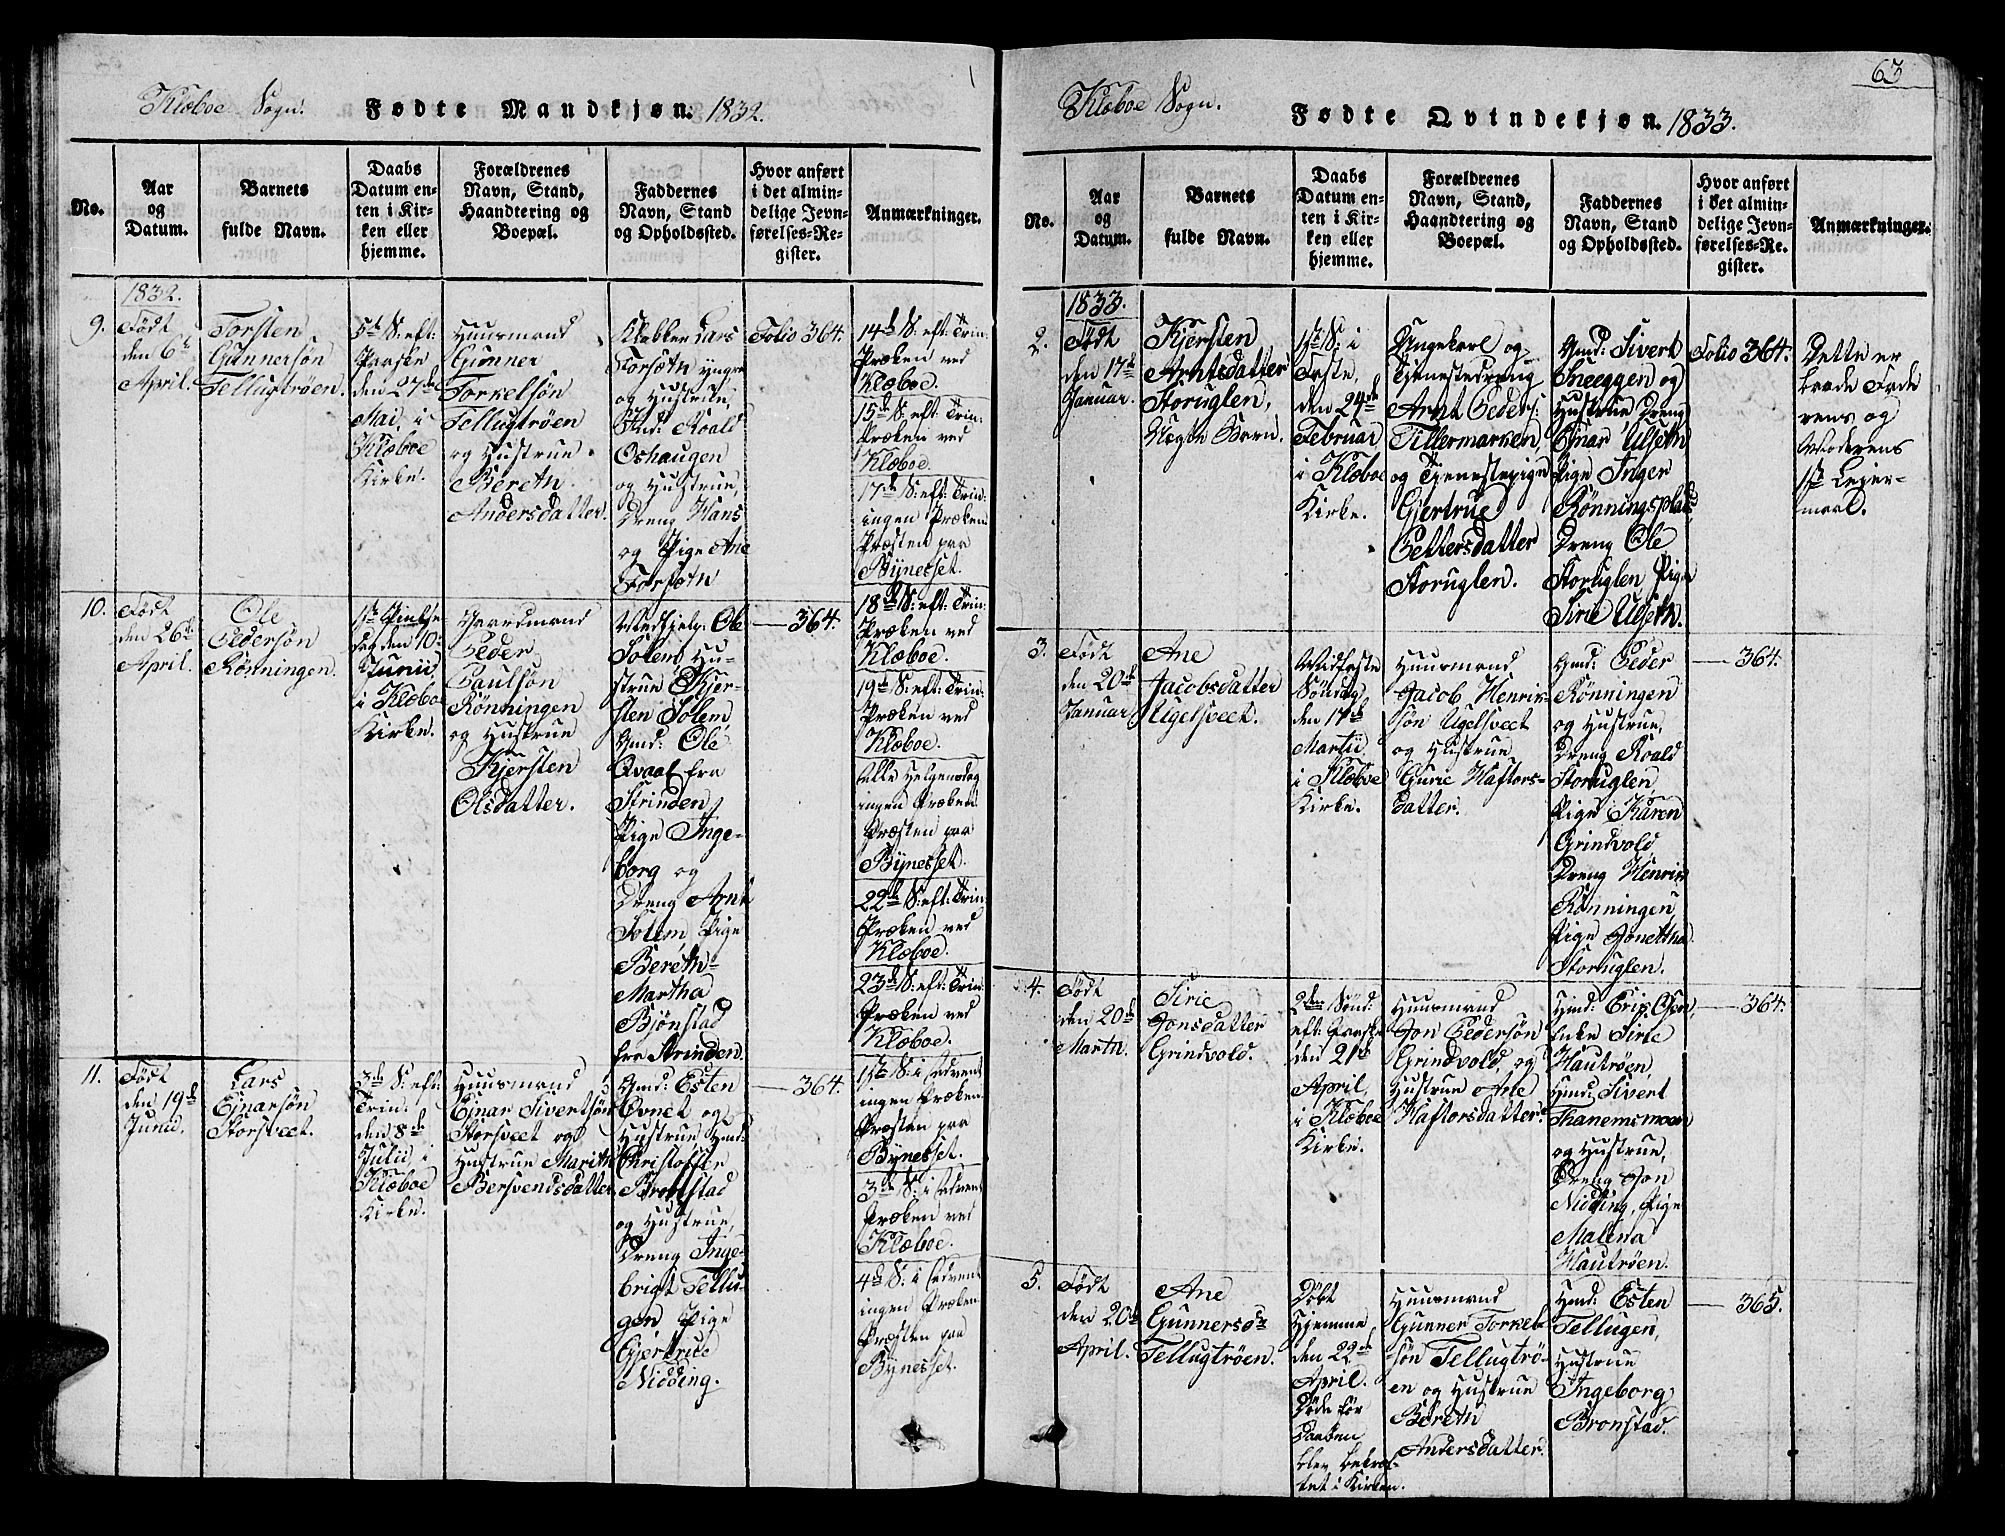 Klæboe Sogn.
Fødte Mandkjøn. 1832.
No.
Aar
og
Datum.
Barnets
fulde Navn.
Daabs
Datum en-
ten i Kir-
ken eller
hjemme.
Forældrenes
Navn, Stand,
Haandtering og
Boepæl.
Faddernes
Navn, Stand
og Opholdssted.
Hvor anført
i det almin-
delige Jevn-
førelses-Re-
gister.
Anmærkninger.
1832.
9.
Født
den 6te
April.
Torsten
Gunnersön
Tellugtröen.
5te S: eft:
Paaske
den 27de
Mai, i
Klæboe
Kirke.
Huusmand
Gunner
Torkelsön
Tellugtröen
og Hustrue
Bereth
Andersdatter.
Klokker Lars
Forsæth yngre
og Hustrue,
Roald
Oshaugen
og Hustrue,
Dreng Hans
og Pige Ane
Forsæth
Folio 364.
14de S: eft: Trin:
Præken ved
Klæboe.
15de S: eft: Trin:
Præken ved
Klæboe.
17de S: eft: Trin:
ingen Præken
Præsten paa
Bynesset.
10.
Født
den 26de
April.
Ole
Pedersön
Rönningen.
1ste Pintse
dag den 10de
Junii,
i Klæboe
Kirke.
Gaardmand
Peder
Paulsön
Rönningen
og Hustrue
Kjersten
Olsdatter.
Medhjelp: Ole
Solem, Hu-
strue Kjer-
sten Solem
Gmd: Ole
Qvaal fra
Strinden,
Pige Inge-
borg og
Dreng Arnt
Solem Pige
Bereth-
Martha
Bjönstad
fra Strinden.
— 364.
18de S: eft: Trin:
Præken ved
Klæboe.
19de S: eft: Trin:
Præken ved
Klæboe.
Alle Helgensdag
ingen Præken
Præsten paa
Bynesset.
22de S: eft: Trin:
Præken ved
Klæboe.
23de S: eft: Trin:
Præken ved
Klæboe.
11.
Født
den 19de
Junii.
Lars
Ejnarsön
Storsveet.
3die S: eft:
Trin:
den 8de
Julii i
Klæboe
Kirke.
Huusmand
Ejnar Sivertsön
Storsveet og
Hustrue Marith
Bersvendsdatter
Gmd: Esten
Ovnet og
Hustrue, Hmd:
Christoffer
Bronstad
og Hustrue,
Dreng Inge-
brigt Tellu-
gen Pige
Gjertrue
Nidding.
— 364.
1ste S: i Advent
ingen Præken
Præsten paa
Bynesset.
3die S: i Advent
Præken ved
Klæboe.
4de S: i Advent
ingen Præken
Præsten paa
Bynesset.
63
Klæboe Sogn.
Fødte Qvindekjøn. 1833.
No.
Aar
og
Datum.
Barnets
fulde Navn.
Daabs
Datum en-
ten i Kir-
ken eller
hjemme.
Forældrenes
Navn, Stand,
Haandtering og
Boepæl.
Faddernes
Navn, Stand
og Opholdssted.
Hvor anført
i det almin-
delige Jevn-
førelses-Re-
gister.
Anmærkninger.
1833.
2.
Født
den 17de
Januar.
Kjersten
Arntsdatter
Storuglen,
Uægte Barn.
1ste S: i
Faste,
den 24de
Februar
i Klæboe
Kirke.
Ungekarl og
Tjenestedreng
Arnt Peders:
Tillermarken,
og Tjenestepige
Gjertrue
Pettersdatter
Storuglen.
Gmd: Sivert
Sneeggen og
Hustrue Dreng
Ejnar Ulseth
Pige Inger
Rönningsplads
Dreng Ole
Storuglen Pige
Sirie Ulseth.
Folio 364.
Dette er
baade Fade
rens og
Moderens
1ste Lejer-
maal.
3.
Født
den 20de
Januar.
Ane
Jacobsdatter
Ugelsveet.
Midfaste
Söndag
den 17de
Martii
i Klæboe
Kirke.
Huusmand
Jacob Henrik-
sön Ugelsveet
og Hustrue
Gurie Haftors-
datter.
Gmd: Peder
Rönningen
og Hustrue,
Dreng Roald
Storuglen,
Pige Karen
Grindvold
Dreng Henrik
Rönningen
Pige Jonettha
Storuglen.
— 364.
4.
Født
den 20de
Martii.
Sirie
Jonsdatter
Grindvold.
2den Sönd:
eft: Paaske
den 21de
April,
i Klæboe
Kirke.
Huusmand
Jon Pedersön
Grindvold, og
Hustrue Ane
Haftorsdatter.
Hmd: Erik Osen,
Enke Sirie
Hautröen,
Hmd: Sivert
Thanemsmoen
og Hustrue,
Dreng Jon
Nidding, Pige
Malena
Hautröen.
— 364.
5.
Født
den 20de
April.
Ane
Gunnersdr
Tellugtröen.
Döbt
Hjemme
den 22de
April.
Döde för
Daaben
blev bekræf-
tet i Kirken.
Huusmand
Gunner Torkel-
sön Tellugtrö-
en og Hustrue
Bereth
Andersdatter.
Gmd: Esten
Tellugen,
Hustrue
Ingeborg
Bronstad.
— 365.